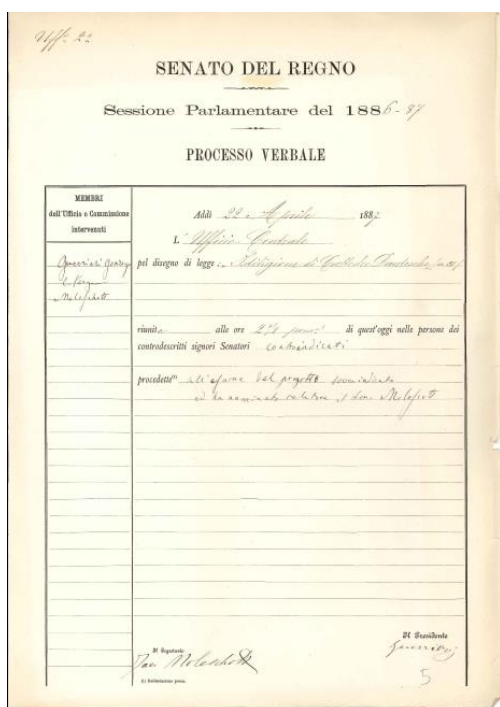 Uff. 22
SENATO DEL REGNO
Sessione Parlamentare del 1886-87
PROCESSO VERBALE
MEMBRI
dell'Ufficio o Commissione
intervenuti
Guerrieri Gonzaga
Moleschott
Addì 22 Aprile 1887
L'Ufficio Centrale
pel disegno di legge: Istituzione di Cattedre Dantesche
riunito alle ore 2 pom. di quest'oggi nelle persone dei
controdescritti signori Senatori controindicati
procedette all'esame del progetto sovraindicato
ed ha nominato relatore il Sen. Moleschott
Il Presidente
Guerrieri
Il Segretario
Jac. Moleschott
5